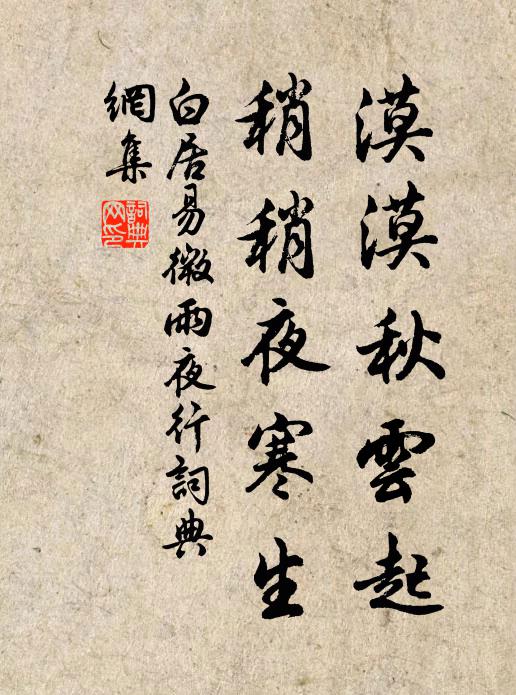 漠漠秋雲起
稍稍夜寒生
白居易微雨夜行詞典
網集
詞典网印